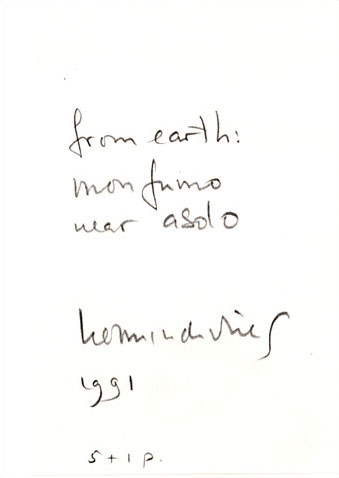 from earth:
monfumo
near asolo
herman de vries
1991
5 + 1 p.